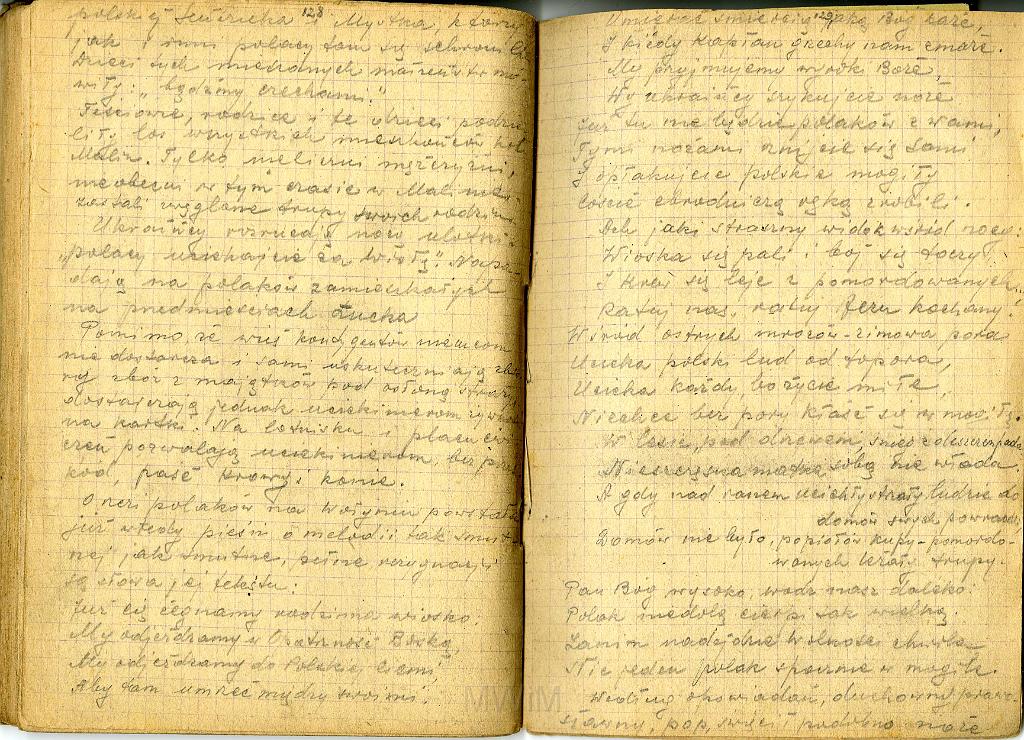 128
polskiej i Mystka, którzy
jak i inni polacy tam się schronili.
Dzieci tych mieszanych małżeństw mó-
wiły: „będziemy czechami."
Teściowe, rodzice i te dzieci podzie-
liły los wszystkich mieszkańców kol.
Malin. Tylko nieliczni mężczyźni,
nieobecni w tym czasie w Malinie
zastali zwęglone trupy swoich rodzin.
Ukraińcy rozrzucają nowe ulotki:
„polacy uciekajcie za Wisłę." Napa-
dają na polaków zamieszkałych
na przedmieściach Łucka
Pomimo, że wieś kontygentów niemcom
nie dostarcza i sami uskuteczniają zbio-
ry zbóż z majątków pod osłoną straży
dostarczają jednak uciekinierom żywność
na kartki. Na lotnisku i placu ćwi-
czeń pozwalają uciekinierom, bez przesz-
kód, paść krowy i konie.
O rzezi polaków na Wołyniu powstała
już wtedy pieśń o melodii tak smut-
nej jak smutne, pełne rezygnacji
są słowa jej tekstu:
Już cię żegnamy rodzinna wiosko:
My odjeżdżamy w Opatrność Boską,
My odjeżdżamy do Polskiej ziemi,
Aby tam umrzeć między swoimi.
129
Umierać śmiercią jaką Bóg każe,
I kiedy kapłan grzechy nam zmaże.
My przyjmujemy wyroki Boże,
Wy ukraińcy szykujcie noże
Już tu nie będzie polaków z wami,
Tymi nożami rżnijcie się sami
I opłakujcie polskie mogiły
Coście zbrodniczą ręką zrobili.
Ach jaki straszny widok wśród nocy:
Wioska się pali i bój się toczy,
I krew się leje z pomordowanych...
Ratuj nas, ratuj Jezu kochany!
Wśród ostrych mrozów - zimowa pora
Ucieka polski lud od topora,
Ucieka każdy, bo życie miłe,
Niechce bez pory kłaść się w mogiłę.
W lesie, pod drzewem, śnieg z deszczem pada
Nieszczęsna matka sobą nie włada.
A gdy nad ranem ucichły strzały ludzie do
domów swych powracali,
Domów nie było, popiołów kupy - pomordo-
wanych leżały trupy.
Pan Bóg wysoko, wódz nasz daleko:
Polak niedolę cierpi tak wielką.
Zanim nadejdzie wolności chwila
Nie jeden polak spocznie w mogile.
Według opowiadań, duchowny prawo-
sławny, pop, święci podobno noże
MWiM